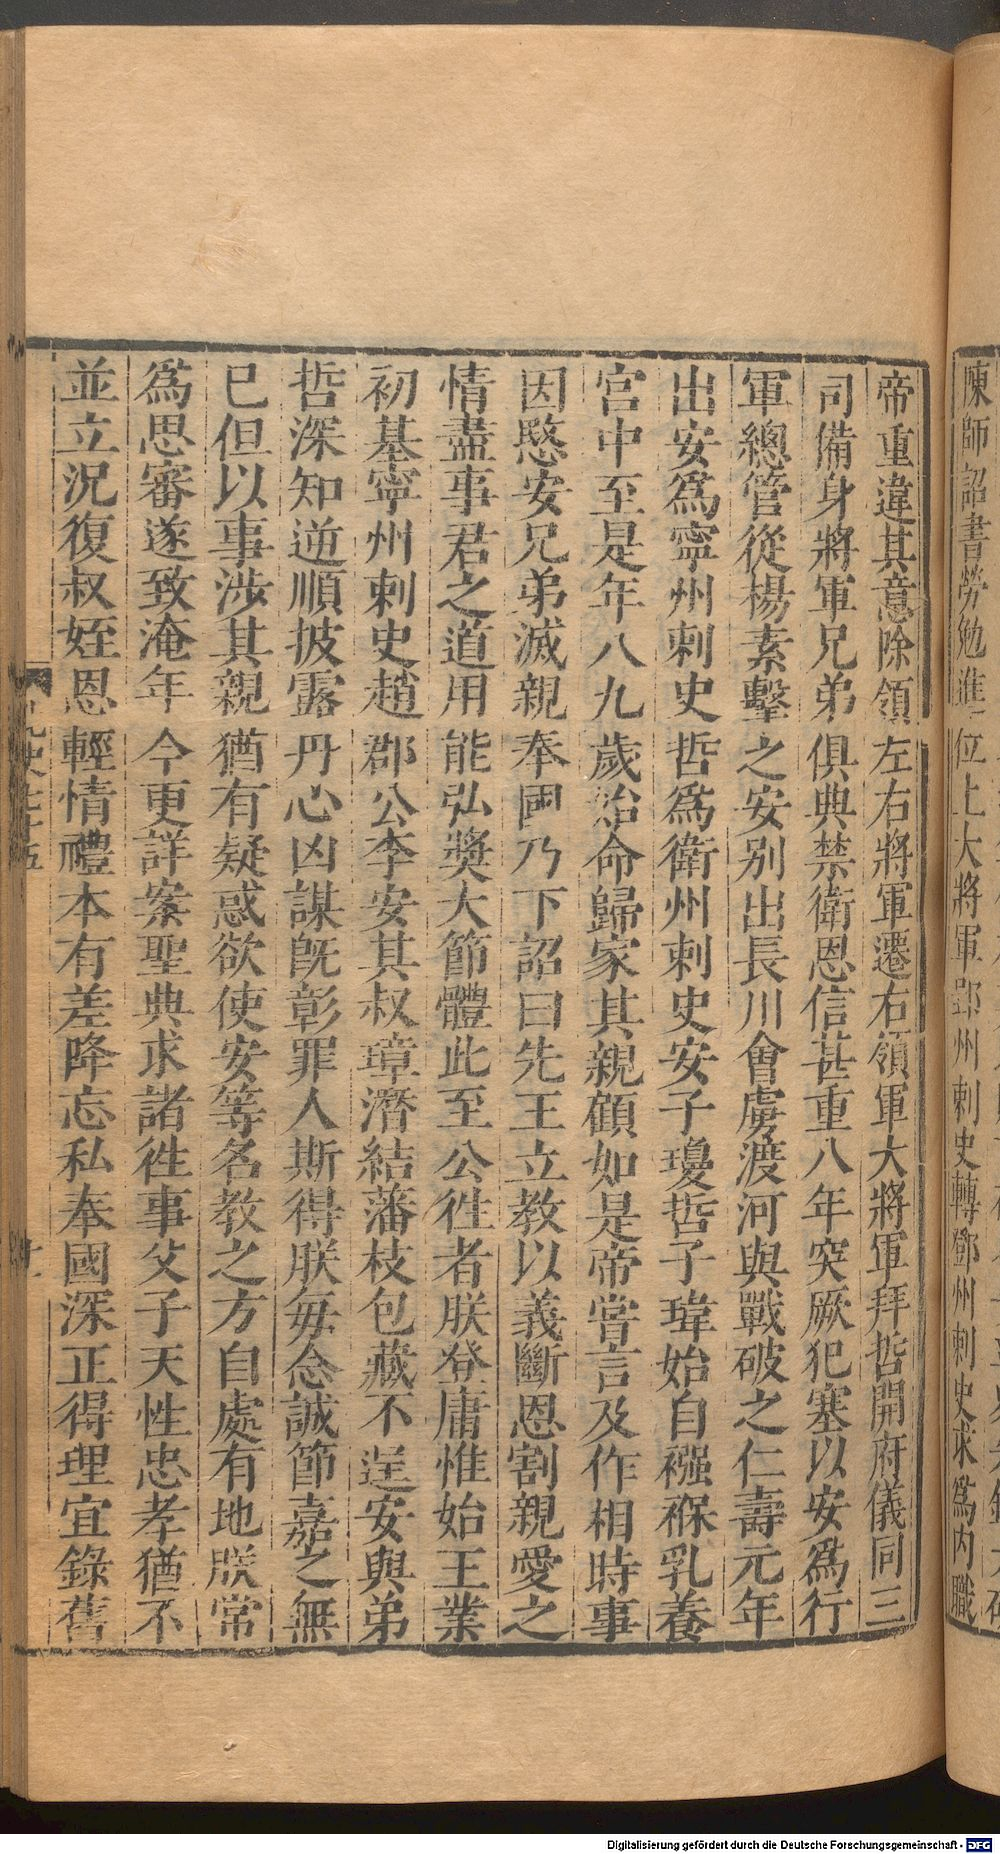 陳師詔書勞勉進位上大將軍郢州刺史轉鄧州刺史求爲内職
帝重違其意除領左右將軍遷右領軍大將軍拜哲開府儀同三
司備身將軍兄弟俱典禁衛恩信甚重八年突厥犯塞以安爲行
軍總管從楊素擊之安別出長川會虜渡河與戰破之仁壽元年
出安爲寧州刺史哲爲衛州刺史安子瓊哲子瑋始自襁褓乳養
宮中至是年八九歲始命歸家其親顧如是帝嘗言及作相時事
因愍安兄弟滅親奉國乃下詔曰先王立教以義斷恩割親愛之
情盡事君之道用能弘獎大節體此至公徃者朕登庸惟始王業
初基寧州刺史趙郡公李安其叔璋潛結藩枝包藏不逞安與弟
哲深知逆順披露丹心凶謀旣彰罪人斯得朕每念誠節嘉之無
已但以事涉其親猶有疑惑欲使安等名教之方自處有地朕常
爲思審遂致淹年今更詳案聖典求諸徃事父子天性忠孝猶不
並立況復叔姪恩輕情禮本有差降忘私奉國深正得理宜錄舊
北史七十五
十一
Digitalisierung gefördert durch die Deutsche Forschungsgemeinschaft - DFG